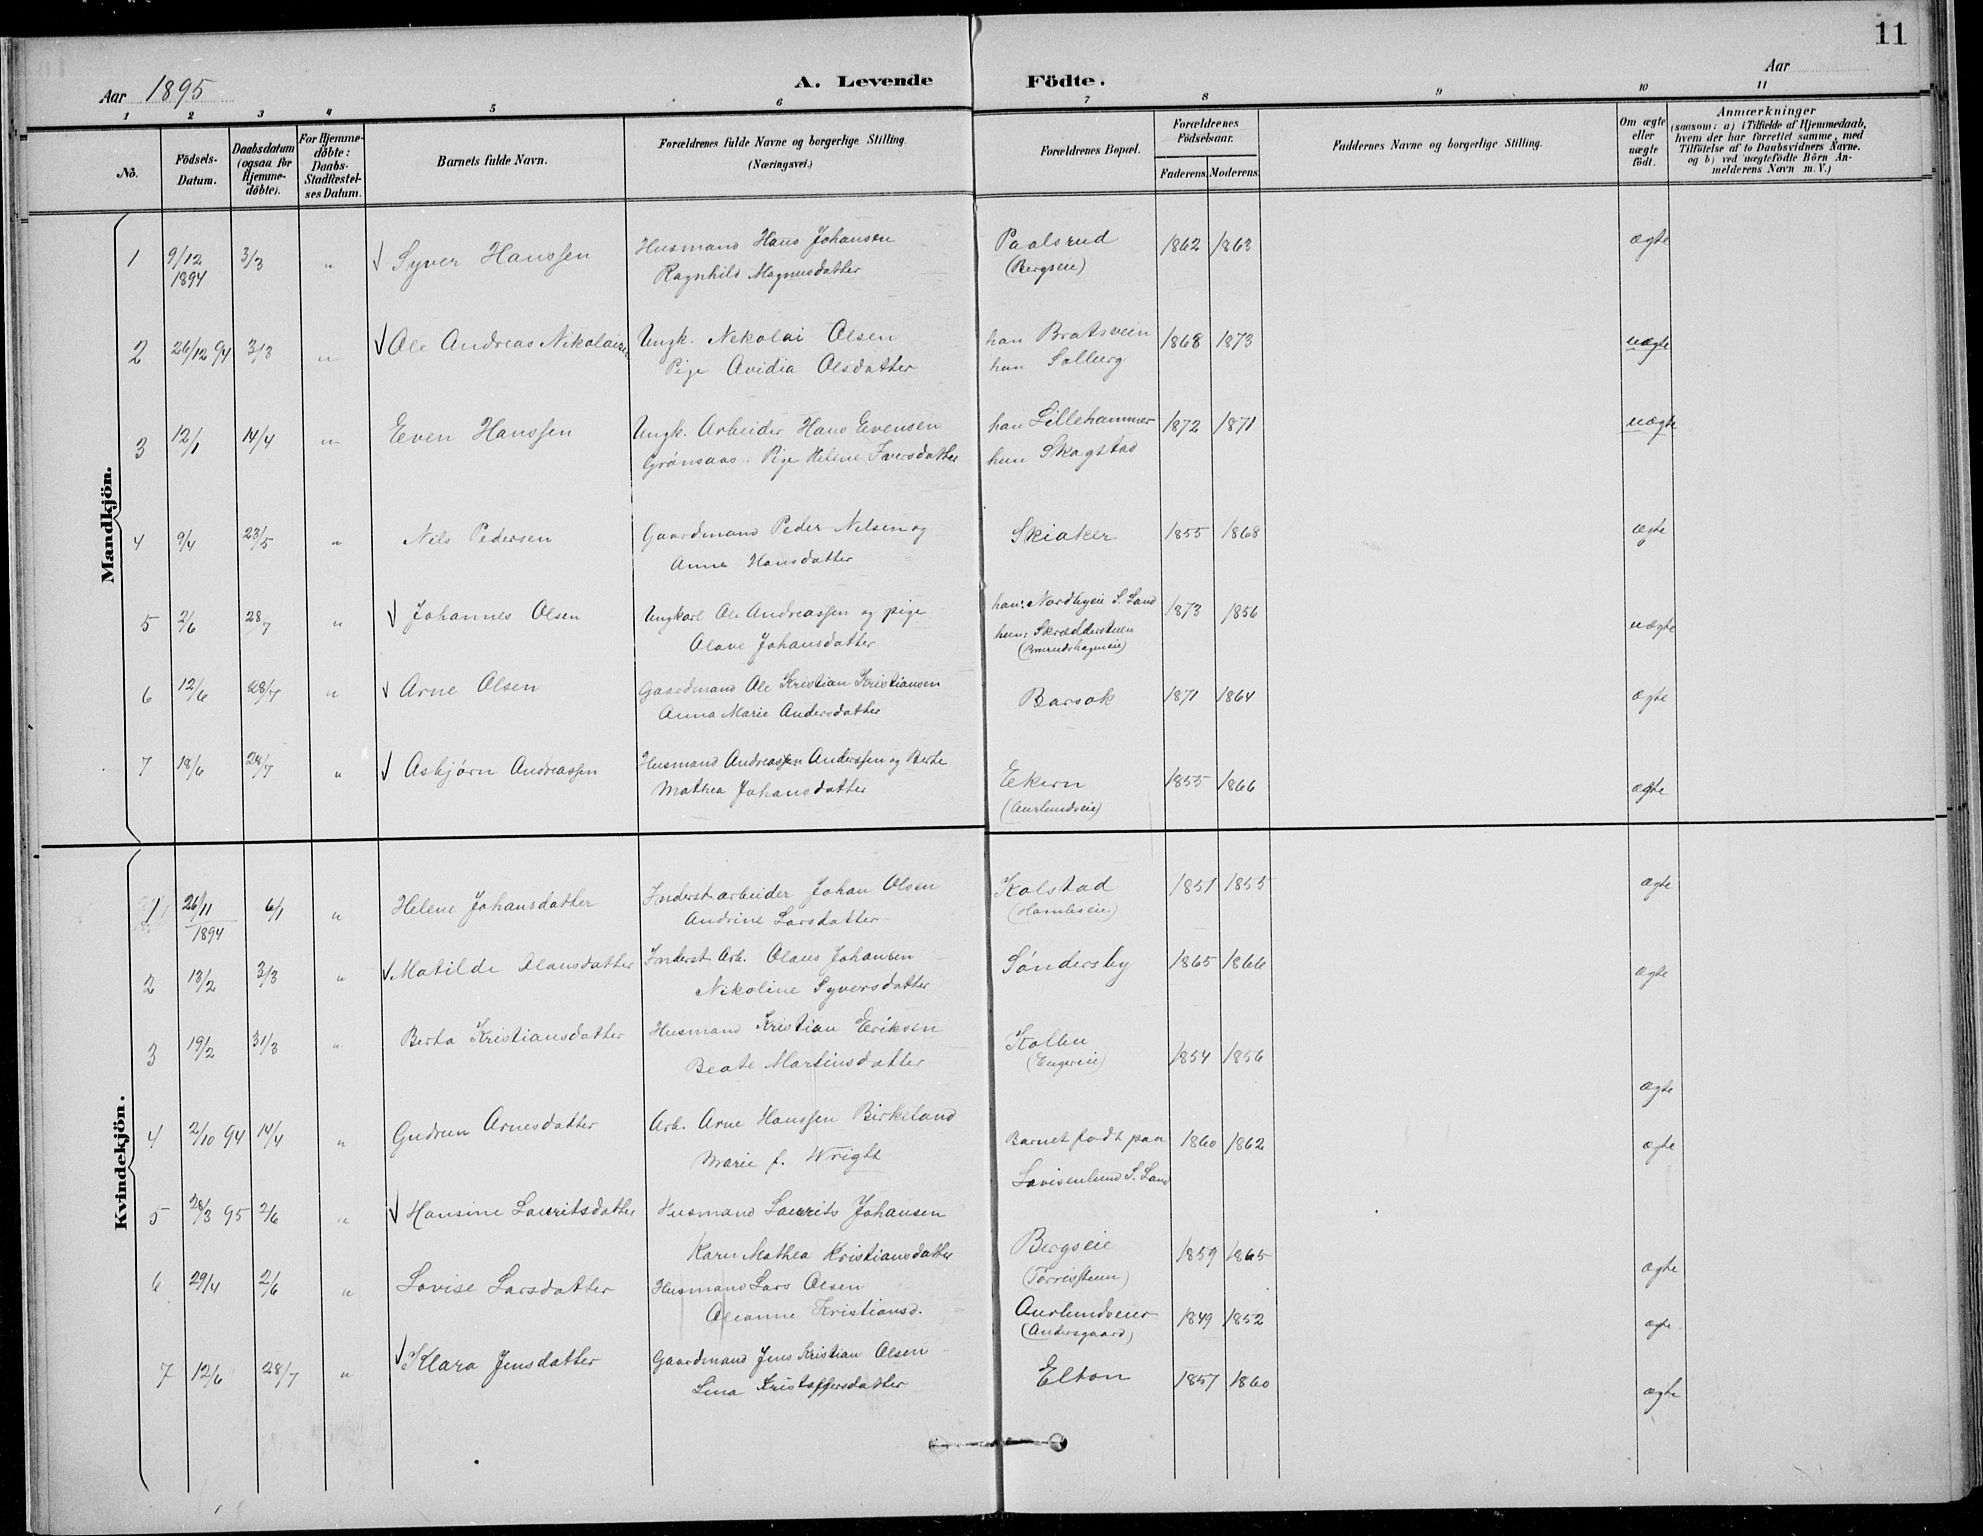 11
Aar 1895
A. Levende Födte.
Aar
1 2 3 4 5 6 7 8 9 10 11
No.
Födsels-Datum.
Daabsdatum (ogsaa for Hjemme-döbte).
For Hjemme-döbte: Daabs-Stadfæstel-ses Datum.
Barnets fulde Navn.
Forældrenes fulde Navne og borgerlige Stilling.
(Næringsvei.)
Forældrenes Bopæl.
Forældrenes Födselsaar.
Faderens. Moderens.
Faddernes Navne og borgerlige Stilling.
Om ægte eller uægte födt.
Anmærkninger
(saasom: a) i Tilfælde af Hjemmedaab,
hvem der har forrettet samme, med
Tilföielse af to Daabsvidners Navne,
og b) ved uægtefödte Börn An-
melderens Navn m. V.)
Mandkjön.
1 9/12 1894 3/3 " √ Syver Hanssen Husmand Hans Johansen Paalsrud 1862 1863 ægte
Ragnhild Magnusdatter (Bergseie)
2 26/12 94 3/3 " √ Ole Andreas Nikolaisen Ungk. Nekolai Olsen han Bratsveen 1868 1873 uægte
Pige Avidia Olsdatter hun Solberg
3 12/1 14/4 " Even Hanssen Ungk. Arbeider Hans Evensen han Lillehammer 1872 1871 uægte
Grönsaas. Pige Helene Iversdatter hun Skagstad
4 9/4 23/5 " Nils Pedersen Gaardmand Peder Nilsen og Skiaker 1855 1868 ægte
Anne Hansdatter
5 2/6 28/7 " √ Johannes Olsen Ungkarl Ole Andreassen og pige han: Nordbyeie S. Land 1873 1856 uægte
Olave Johansdatter hun: Skrædderstuen
6 12/6 28/7 " √ Arne Olsen Gaardmand Ole Kristian Kristiansen Barsok 1871 1864 ægte
Anna Marie Andersdatter
7 18/6 28/7 " √ Asbjørn Andreassen Husmand Andreassen Anderssen og Berte Ekern 1855 1866 ægte
Mathea Johansdatter (Aurlundseie)
Kvindekjön.
1 26/11 1894 6/1 " Helene Johansdatter Inderst arbeider Johan Olsen Kolstad 1851 1855 ægte
Andrine Larsdatter
2 13/2 3/3 " √ Matilde Olausdatter Inderst Arb. Olaus Johansen Søndersby 1865 1866 ægte
Nikoline Syversdatter
3 19/2 31/3 " Berta Kristiansdatter Husmand Kristian Eriksen 1854 1856 ægte
Beate Martinsdatter (Engereie)
4 2/10 94 14/4 " Gudrun Arnesdatter Arb. Arne Hanssen Birkeland Barnet født paa 1860 1862 ægte
Marie f. Wright Lovisenlund S. Land
5 28/3 95 2/6 " √ Hansine Lauritsdatter Husmand Laurits Johansen
Karen Mathea Kristiansdatter Bergseie 1859 1865 ægte
6 29/4 2/6 " Lovise Larsdatter Husmand Lars Olsen
Oleanne Kristiansd. Aurlundseier 1849 1852 ægte
(Andersgaard)
7 12/6 28/7 " √ Klara Jensdatter Gaardmand Jens Kristian Olsen Elton 1857 1860 ægte
Lina Kristoffersdatter